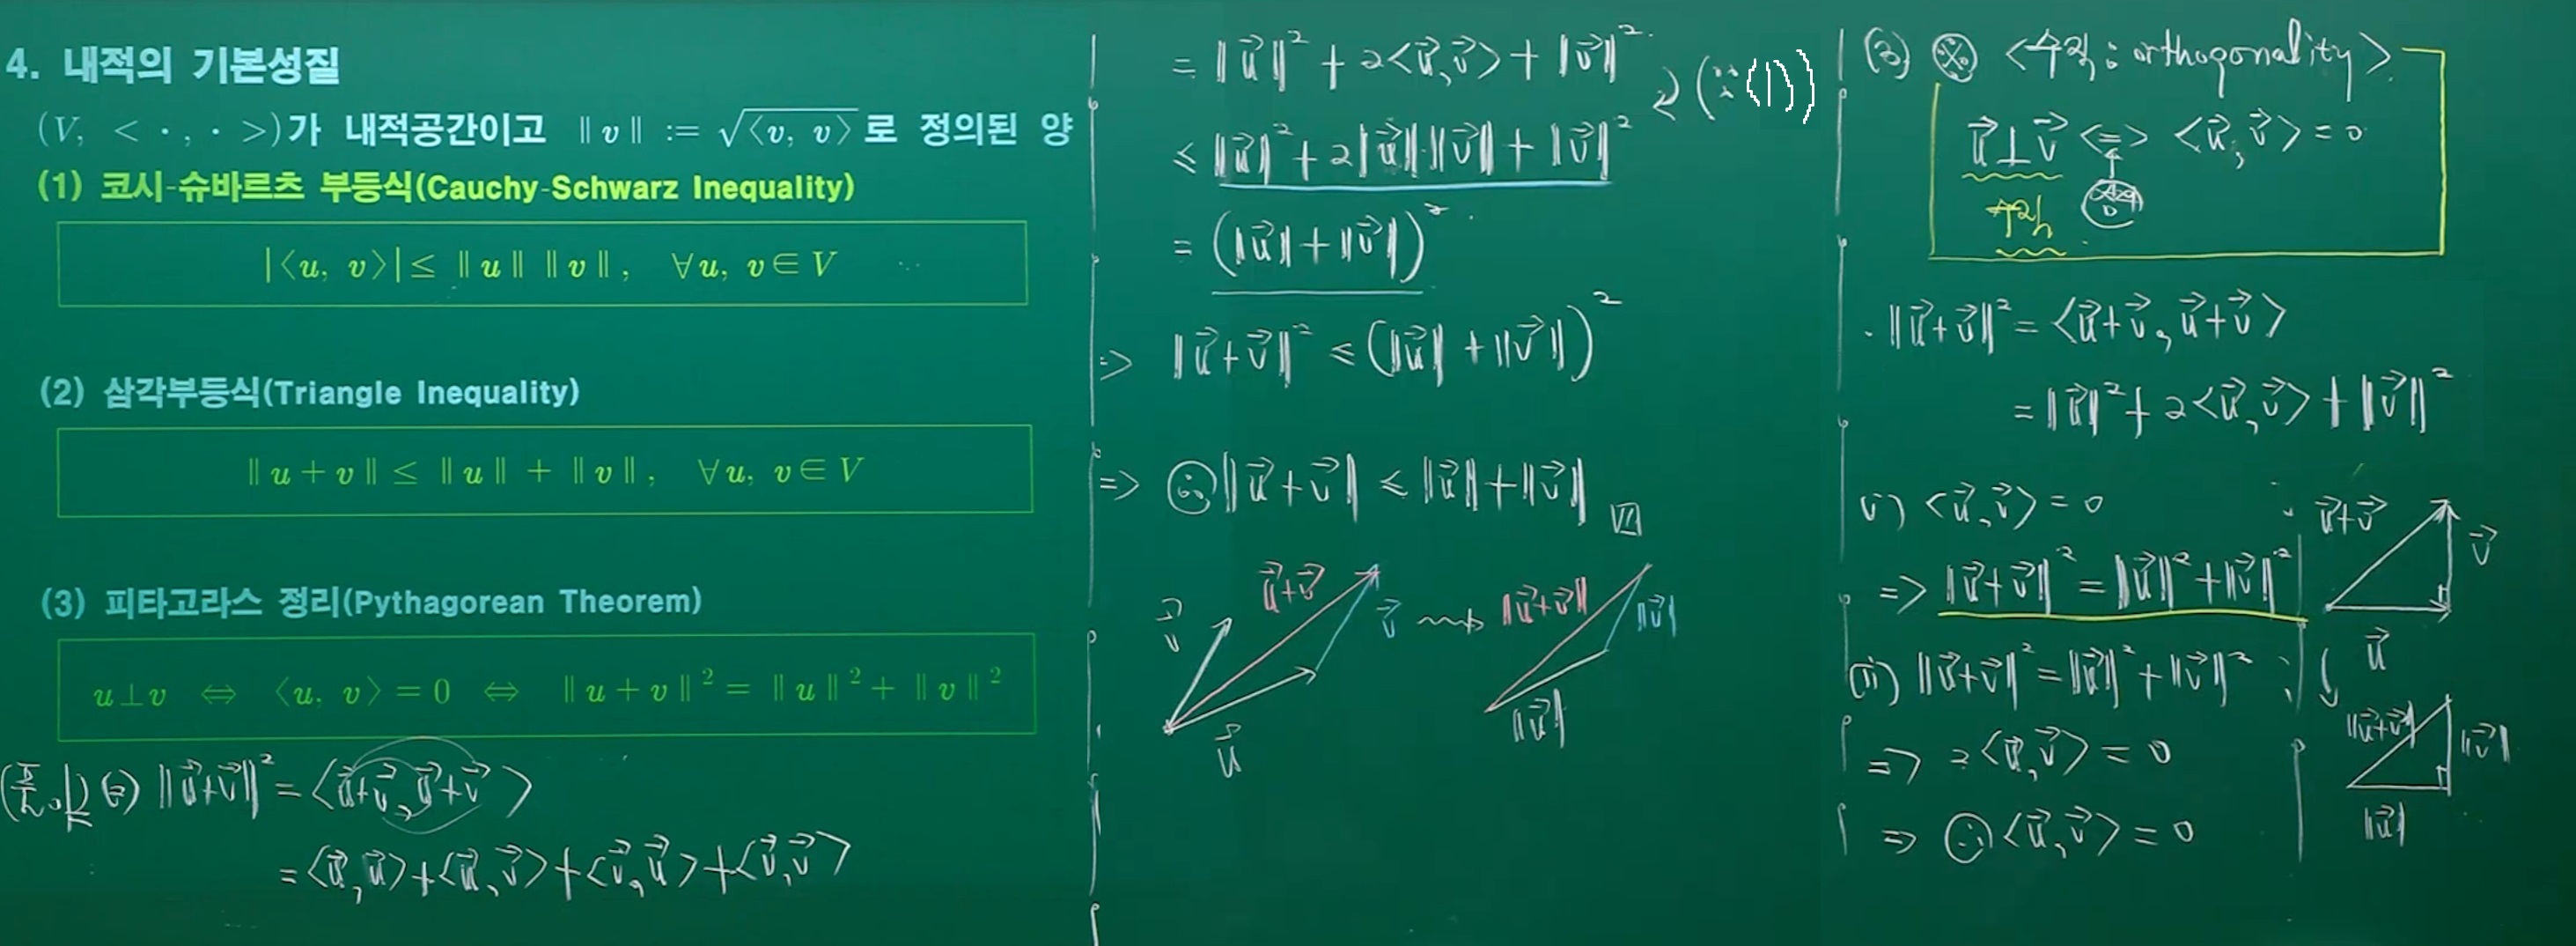 4. 내적의 기본성질
(V, < ·, · >)가 내적공간이고 ‖v‖ := √⟨v, v⟩ 로 정의된 양
(1) 코시-슈바르츠 부등식(Cauchy-Schwarz Inequality)
|⟨u, v⟩| ≤ ‖u‖ ‖v‖, ∀u, v∈V
(2) 삼각부등식(Triangle Inequality)
‖u+v‖ ≤ ‖u‖ + ‖v‖, ∀u, v∈V
(3) 피타고라스 정리(Pythagorean Theorem)
u⊥v ⇔ ⟨u, v⟩=0 ⇔ ‖u+v‖² = ‖u‖² + ‖v‖²
(풀이) (2) ‖u⃗+v⃗‖² = ⟨u⃗+v⃗, u⃗+v⃗⟩
= ⟨u⃗, u⃗⟩+⟨u⃗, v⃗⟩+⟨v⃗, u⃗⟩+⟨v⃗, v⃗⟩
= ‖u⃗‖² + 2⟨u⃗, v⃗⟩ + ‖v⃗‖²
≤ ‖u⃗‖² + 2‖u⃗‖·‖v⃗‖ + ‖v⃗‖² (∵ (1))
= (‖u⃗‖+‖v⃗‖)²
⇒ ‖u⃗+v⃗‖² ≤ (‖u⃗‖+‖v⃗‖)²
⇒ ∴ ‖u⃗+v⃗‖ ≤ ‖u⃗‖+‖v⃗‖
v⃗ u⃗+v⃗ v⃗ ‖u⃗+v⃗‖ ‖v⃗‖
u⃗ ‖u⃗‖
(3) ※ <수직: orthogonality>
u⃗⊥v⃗ ⇔ ⟨u⃗, v⃗⟩=0
수직
· ‖u⃗+v⃗‖² = ⟨u⃗+v⃗, u⃗+v⃗⟩
= ‖u⃗‖² + 2⟨u⃗, v⃗⟩ + ‖v⃗‖²
i) ⟨u⃗, v⃗⟩ = 0
⇒ ‖u⃗+v⃗‖² = ‖u⃗‖²+‖v⃗‖²
ii) ‖u⃗+v⃗‖² = ‖u⃗‖²+‖v⃗‖²
⇒ 2⟨u⃗, v⃗⟩ = 0
⇒ ∴ ⟨u⃗, v⃗⟩ = 0
u⃗+v⃗ v⃗
u⃗
‖u⃗+v⃗‖ ‖v⃗‖
‖u⃗‖